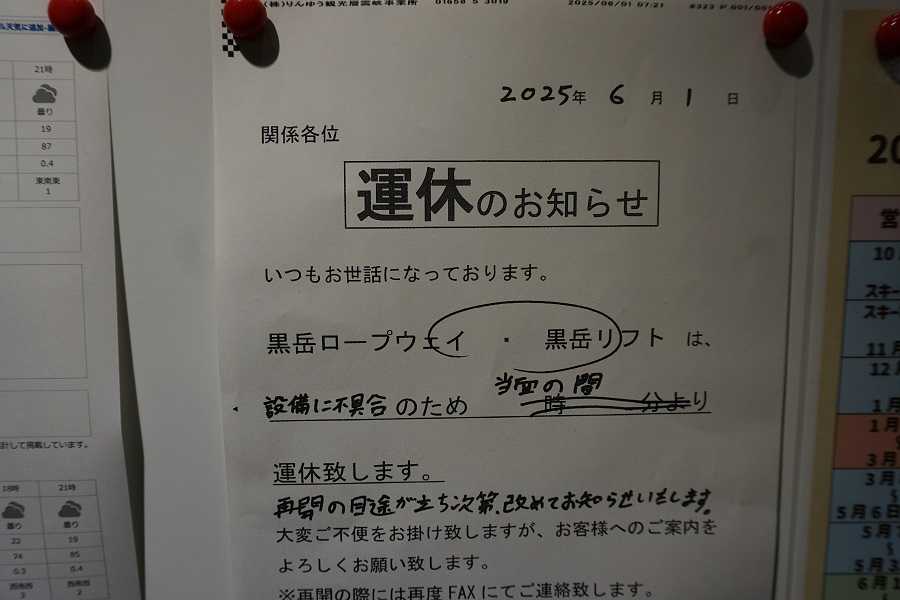 (株)りんゆう観光層雲峡事業所 01658 5 3019 2025/06/01 07:21 #323 P.001/001
2025年 6月 1日
関係各位
運休のお知らせ
いつもお世話になっております。
黒岳ロープウェイ ・ 黒岳リフト は、
当面の間
設備に不具合のため 時 分より
運休致します。
再開の目途が立ち次第、改めてお知らせいたします。
大変ご不便をお掛け致しますが、お客様へのご案内を
よろしくお願い致します。
※再開の際には再度 FAX にてご連絡致します。
21時
曇り
19
87
0.4
東南東
1
計して掲載しています。
18時 21時
曇り 曇り
22 19
74 85
0.3 0.4
西南西 西南西
3 2
20
営
10
スキー
スキー
11月
12月
1月
1月
～
3月
3月
～
5月6日
5月
～
5月3
6月1